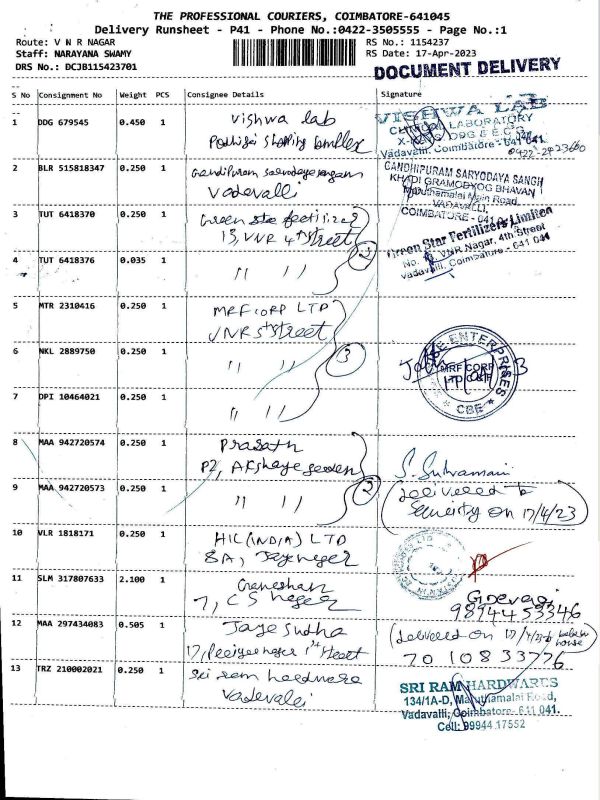 THE PROFESSIONAL COURIERS, COIMBATORE-641045
Delivery Runsheet - P41 - Phone No.:0422-3505555 - Page No.:1
Route: V N R NAGAR
RS No.: 1154237
Staff: NARAYANA SWAMY
RS Date: 17-Apr-2023
DRS No.: DCJB115423701
DOCUMENT DELIVERY
S No Consignment No Weight PCS Consignee Details Signature
1 DDG 679545 0.450 1 Vishwa lab
VISHWA LAB
CLINICAL LABORATORY
X-RAY, DDG & E.C.G
Vadavalli, Coimbatore - 641 041.
2 BLR 515818347 0.250 1 Gandipuram
Vadavalli
GANDHIPURAM SARYODAYA SANGH
KHADI GRAMODYOG BHAVAN
Maruthamalai Main Road,
VADAVALLI,
COIMBATORE - 041
3 TUT 6418370 0.250 1 Green star fertilizer
13, VNR 4th street
Green Star Fertilizers Limited
VNR Nagar, 4th Street
Vadavalli, Coimbatore - 641 041
4 TUT 6418376 0.035 1 " "
2
5 MTR 2310416 0.250 1 MRF CORP LTD
VNR 5th street
6 NKL 2889750 0.250 1 " "
3
ENTERPRISES
MRF CORP
LTD C&F
* CBE *
7 DPI 10464021 0.250 1 " "
8 MAA 942720574 0.250 1 Prasath
P2, Akshaya garden
S. Subramani
9 MAA 942720573 0.250 1 " "
2
Delivered to
Security on 17/4/23
10 VLR 1818171 0.250 1 HIL (INDIA) LTD
8A, Jayanagar
11 SLM 317807633 2.100 1 Ganeshan
7, C S nagar
9894453346
12 MAA 297434083 0.505 1 Jaya Sudha
17, 1st street
(Delivered on 17/4/23 house)
7010833776
13 TRZ 210002021 0.250 1 Sri ram hardware
Vadavalli
SRI RAM HARDWARES
134/1A-D, Maruthamalai Road,
Vadavalli, Coimbatore - 611 041.
Cell: 99944 17552